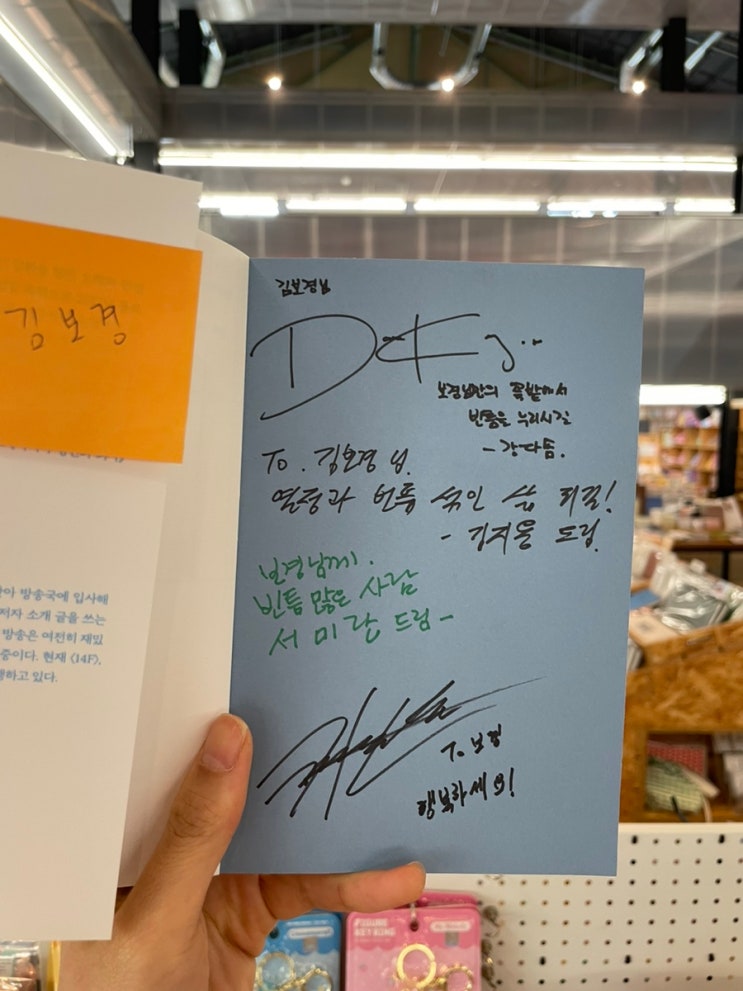 김보경
아 방송국에 입사해
저자 소개 글을 쓰는
방송은 여전히 재밌
중이다. 현재 〈14F〉,
행하고 있다.
김보경님
보경님만의 꽃밭에서
빈틈을 누리시길
- 강다솜.
To. 김보경 님.
열정과 빈틈 섞인 삶 되길!
- 김지윤 드림.
보경님께.
빈틈 많은 사람
서 미 란 드림 -
To 보경
행복하세요!